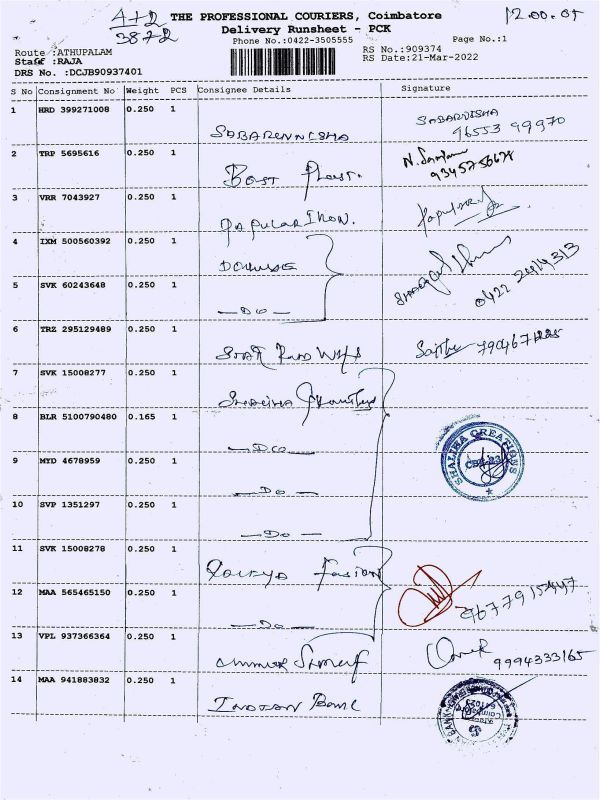 4+2
3872
THE PROFESSIONAL COURIERS, Coimbatore
12.00.05
Delivery Runsheet - PCK
Phone No.:0422-3505555
Page No.:1
Route :ATHUPALAM
RS No.:909374
Staff :RAJA
RS Date:21-Mar-2022
DRS No. :DCJB90937401
S No Consignment No Weight PCS Consignee Details Signature
1 HRD 399271008 0.250 1 SABARUNNISHA SABARNISHA 96553 99970
2 TRP 5695616 0.250 1 Best Plast. N.
3 VRR 7043927 0.250 1 POPULAR IRON.
4 IXM 500560392 0.250 1
5 SVK 60243648 0.250 1 —Do— 0422 2414313
6 TRZ 295129489 0.250 1 STAR
7 SVK 15008277 0.250 1 SHALIHA
8 BLR 5100790480 0.165 1 —Do—
SHALIHA CREATIONS
9 MYD 4678959 0.250 1 —Do—
10 SVP 1351297 0.250 1 —Do—
11 SVK 15008278 0.250 1 Fasion
12 MAA 565465150 0.250 1 —Do— 9677915447
13 VPL 937366364 0.250 1 9994333165
14 MAA 941883832 0.250 1 INDIAN Bank